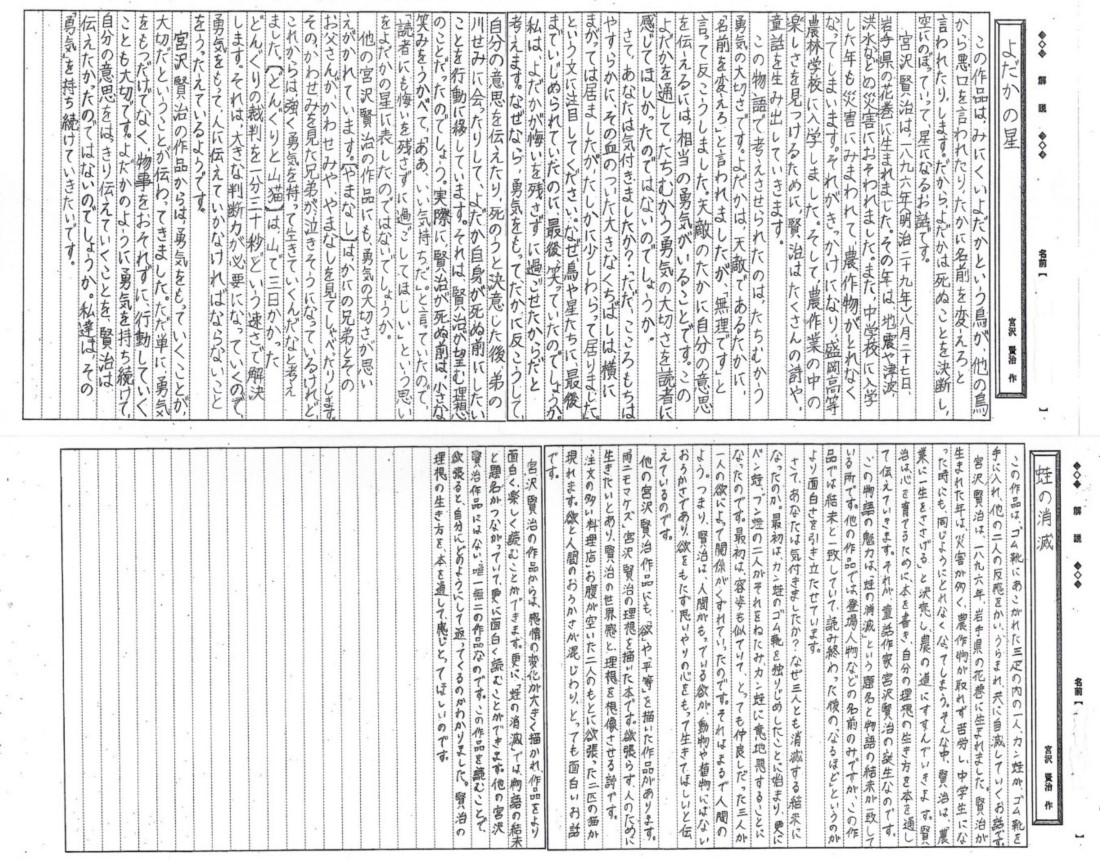 ◆◇◆ 解説 ◆◇◆
名前【 】
よだかの星
宮沢 賢治 作
この作品は、みにくいよだかという鳥が、他の鳥
から悪口を言われたり、たかに名前を変えろと
言われたりします。だから、よだかは死ぬことを決断し、
空にのぼっていって、星になるお話です。
宮沢賢治は、一八九六年(明治二十九年)八月二十七日、
岩手県の花巻に生まれました。その年は、地震や津波、
洪水などの災害におそわれました。また、中学校に入学
した年も災害にみまわれて、農作物がとれなく
なってしまいます。それがきっかけになり、盛岡高等
農林学校に入学しました。そして、農作業の中の
楽しさを見つけるために、賢治はたくさんの詩や、
童話を生み出していきます。
この物語で考えさせられたのは、たちむかう
勇気の大切さです。よだかは、天敵であるたかに、
「名前を変えろ」と言われましたが、「無理です」と
言って反こうしました。天敵のたかに自分の意思
を伝えるには、相当の勇気がいることです。この
よだかを通して、たちむかう勇気の大切さを読者に
感じてほしかったのではないのでしょうか。
さて、あなたは気付きましたか?「ただ、こころもちは
やすらかに、その血のついた大きなくちばしは、横に
まがっては居ましたが、たしかに少しわらって居りました。」
という文に注目してください。なぜ、鳥や星たちに、最後
まで、いじめられていたのに最後、笑っていたのでしょうか。
私は、よだかが悔いを残さずに過ごせたからだと
考えます。なぜなら、勇気をもって、たかに反こうして、
自分の意思を伝えたり、死のうと決意した後、弟の
川せみに会ったりして、よだか自身が死ぬ前にしたい
ことを行動に移しています。それは、賢治が望む理想
のことだったのでしょう。実際に賢治が死ぬ前は、小さな
笑みをうかべて、「ああ、いい気持ちだ。」と言っていたので、
「読者にも悔いを残さずに過ごしてほしい」という思い
をよだかの星に表したのではないでしょうか。
他の宮沢賢治の作品にも、勇気の大切さが思い
えがかれています。【やまなし】はかにの兄弟とその
お父さんが、かわせみや、やまなしを見てしゃべったりします。
その、かわせみを見た兄弟が、泣きそうになっているけれど、
これからは、強く勇気を持って生きていくんだなと考え
ました。【どんぐりと山猫】は、山で三日かかった
どんぐりの裁判を一分三十秒という速さで解決
します。それは、大きな判断力が必要になっていくので、
勇気をもって、人に伝えていかなければならないこと
をうったえているようです。
宮沢賢治の作品からは、勇気をもっていくことが、
大切だということが伝わってきました。ただ単に、勇気
をもつだけでなく、物事をおそれずに、行動していく
ことも大切です。よだかのように勇気を持ち続けて、
自分の意思をはっきり伝えていくことを、賢治は
伝えたかったのではないのでしょうか。私達は、その
「勇気」を持ち続けていきたいです。
◆◇◆ 解説 ◆◇◆
名前【 】
蛙の消滅
宮沢 賢治 作
この作品は、ゴム靴にあこがれた三疋の内の一人、カン蛙が、ゴム靴を
手に入れ、他の二人の反感をかい、うらまれ、共に自滅していくお話です。
宮沢賢治は、一八九六年、岩手県の花巻に生まれました。賢治が
生まれた年は、災害が多く、農作物が取れず苦労し、中学生にな
った時にも、同じようにとれなくなってしまう。そんな中、賢治は、「農
業に一生をささげる」と決意し、農の道にすすんでいきます。賢
治は心を育てるために、本を書き、自分の理想の生き方を本を通し
て伝えていきます。それが、童話作家宮沢賢治の誕生なのです。
この物語の魅力は、「蛙の消滅」という題名と物語の結末が一致して
いる所です。他の作品では、登場人物などの名前のみですが、この作
品では結末と一致していて、読み終わった後のなるほどというのが
より面白さを引き立たせています。
さて、あなたは気付きましたか?なぜ三人とも消滅する結末に
なったのか。最初は、カン蛙のゴム靴を独りじめしたことに始まり、更に
ベン蛙、ブン蛙の二人がそれをねたみ、カン蛙に意地悪することに
なったのです。最初は、容姿も似ていて、とっても仲良しだった三人が
一人の欲によって関係がくずれていったのです。それはまるで人間の
よう。つまり、賢治は、人間がもっている欲が、動物や植物にはない
おろかさであり、欲をもたず思いやりの心をもって生きてほしいと伝
えているのです。
他の宮沢賢治作品にも、「欲」や「平等」を描いた作品があります。
「雨ニモマケズ」宮沢賢治の理想を描いた本です。欲張らず、人のために
生きたいとあり、賢治の世界感と、理想を想像させる詩です。
「注文の多い料理店」お腹が空いた二人のもとに欲張った二匹の猫が
現れます。欲と人間のおろかさが混じわり、とっても面白いお話
です。
宮沢賢治の作品からは、感情の変化が大きく描かれ、作品をより
面白く、楽しく読むことができます。更に、「蛙の消滅」では、物語の結末
と題名がつながっていて、更に面白く読むことができます。他の宮沢
賢治作品にはない、唯一無二の作品なのです。この作品を読むことで、
欲張ると自分にどのようにして返ってくるのかわかりました。賢治の
理想の生き方を、本を通して感じとってほしいのです。